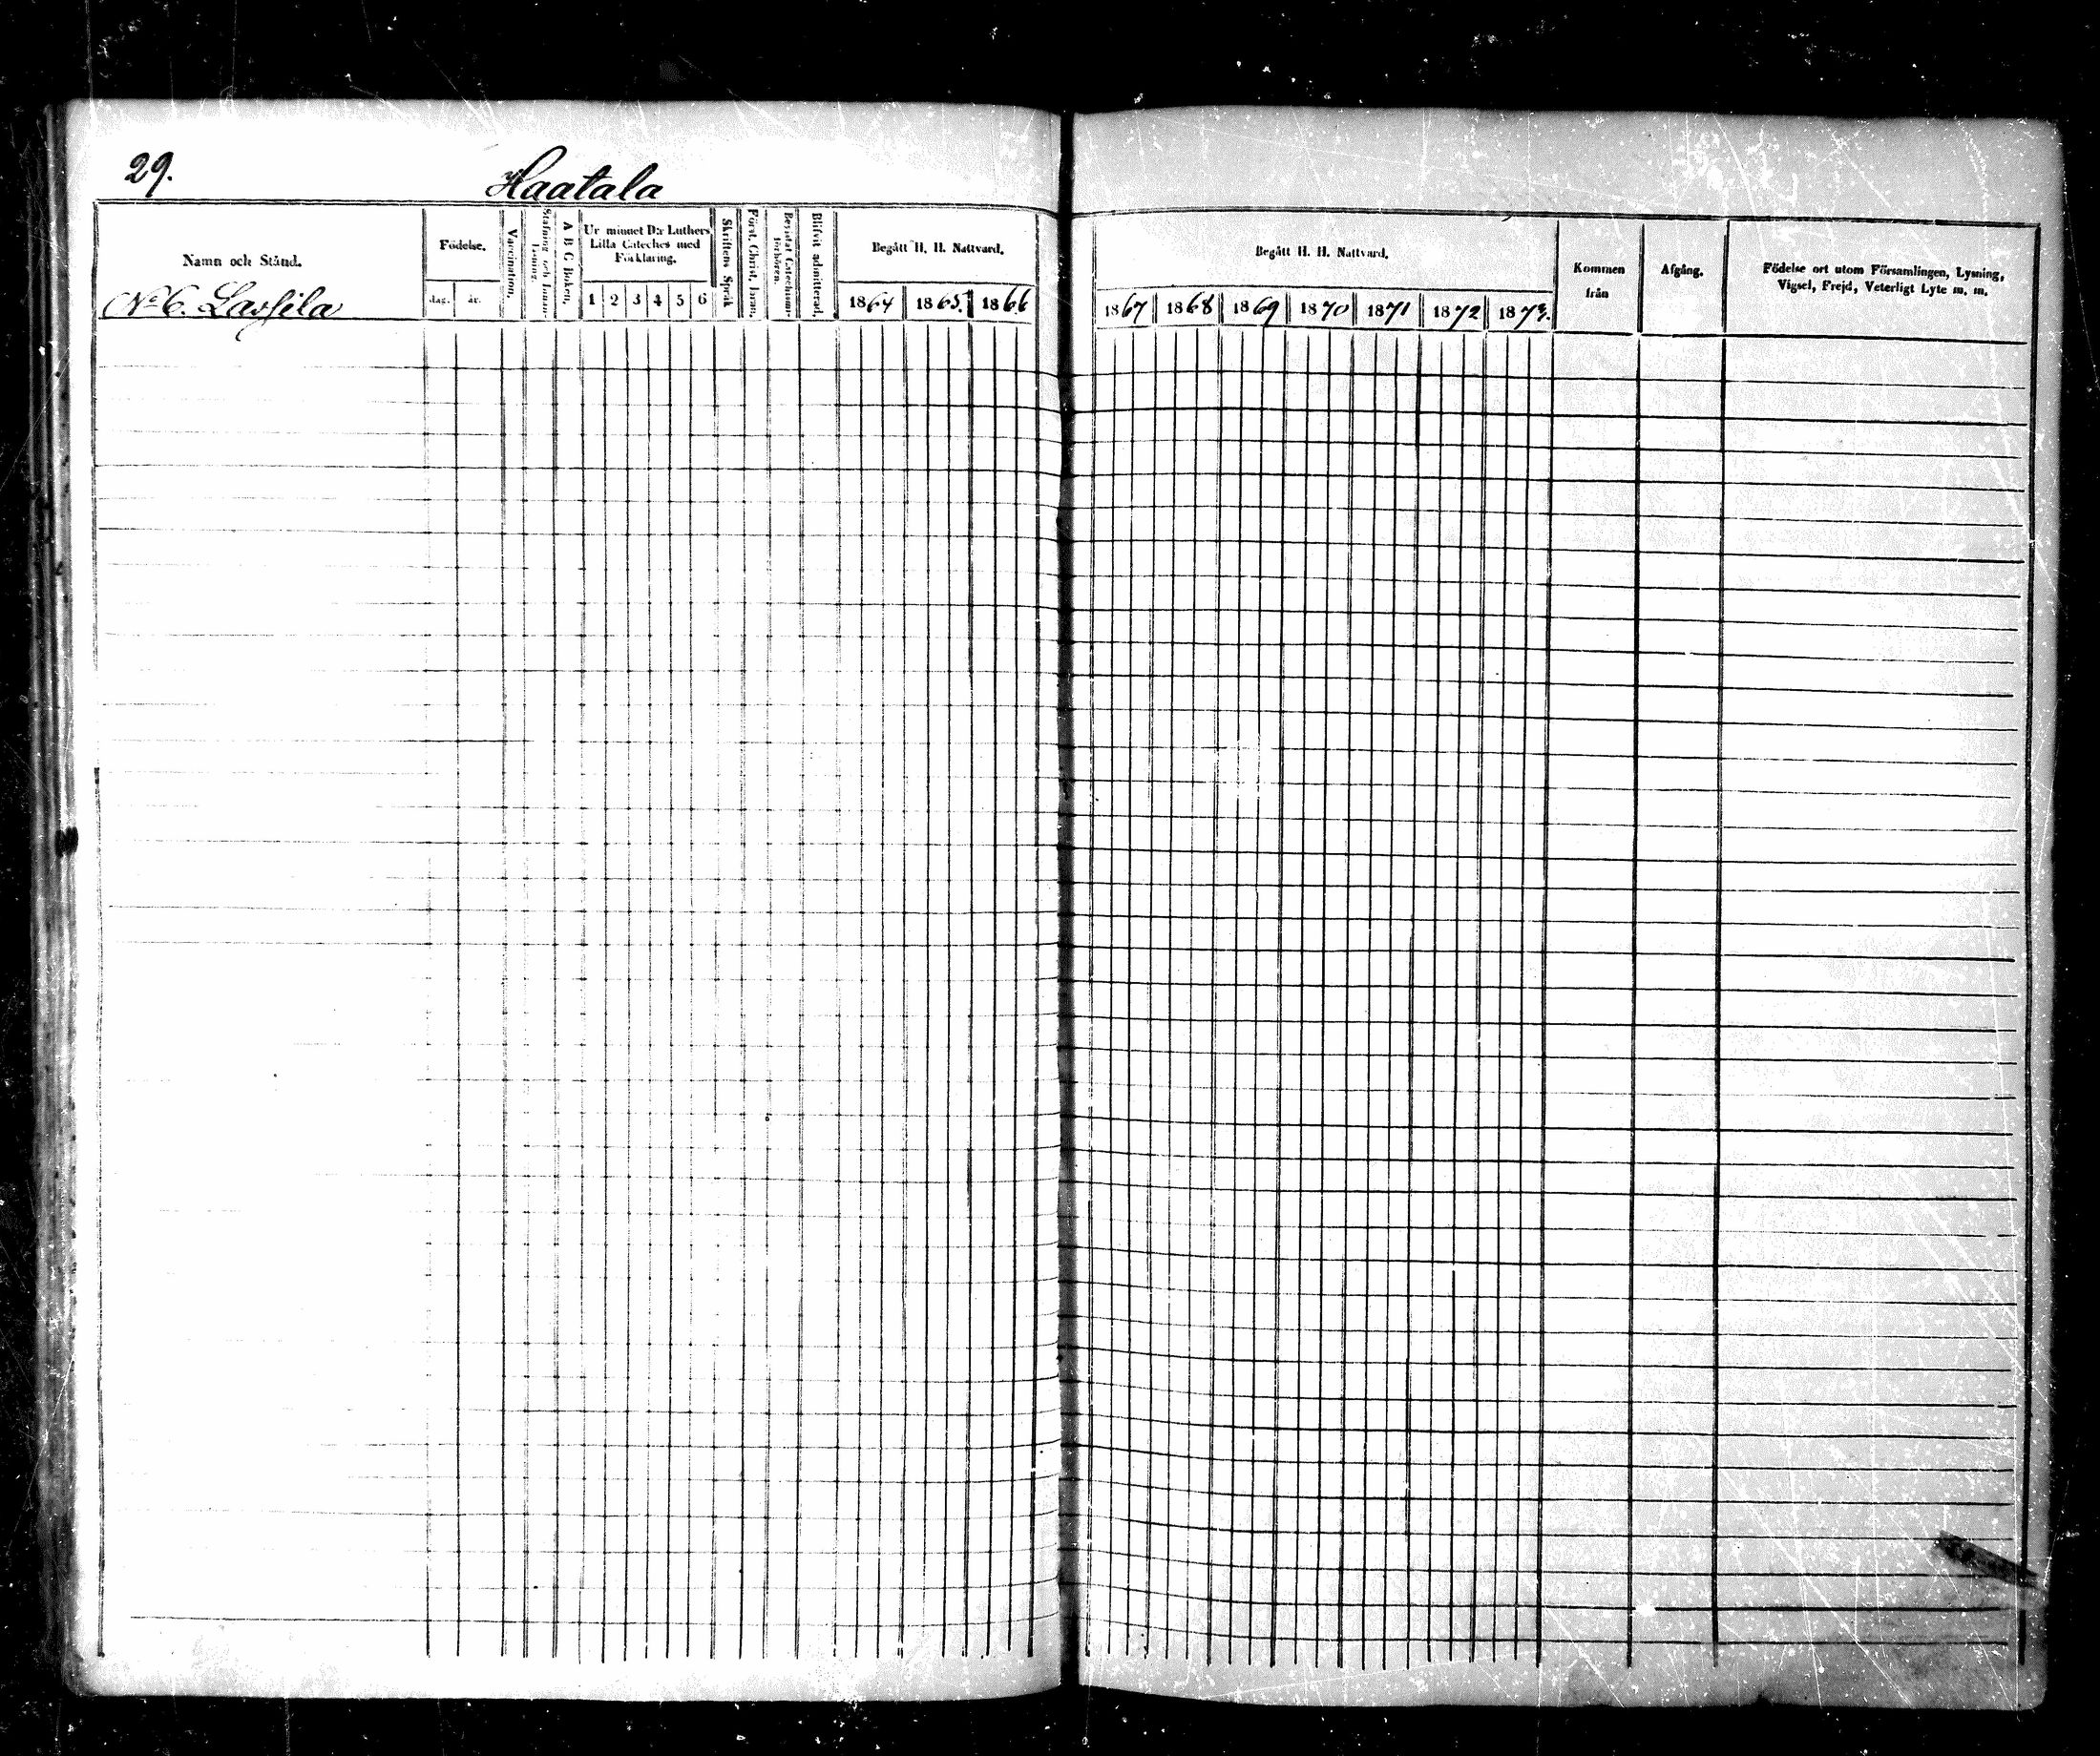 29.
Haatala
Namn och Stånd.
Födelse.
dag. år.
Vaccination.
Stafning och Innanläsning.
A B C Boken.
Ur minnet D:r Luthers
Lilla Cateches med
Förklaring.
1 2 3 4 5 6
Skriftens Språk
Först. Christ. Lärn.
Bevistat Catechismi-
förhören.
Blifvit admitterad.
Begått H. H. Nattvard.
1864 1865. 1866
No 6. Lassila
Begått H. H. Nattvard.
1867 1868 1869 1870 1871 1872 1873.
Kommen
från
Afgång.
Födelse ort utom Församlingen, Lysning,
Vigsel, Frejd, Veterligt Lyte m. m.